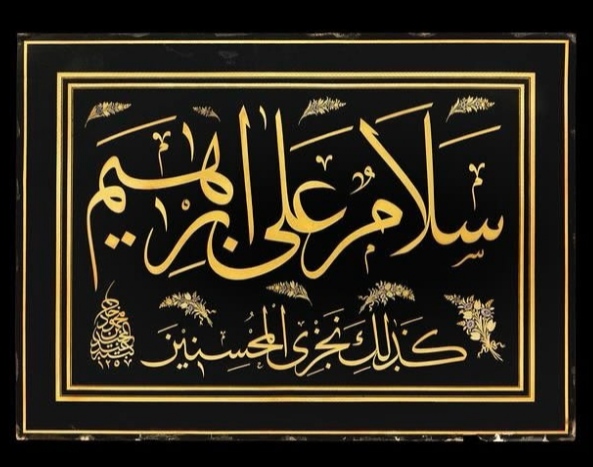 سلام على ابرهيم
كذلك نجزى المحسنين
١٢٥٧